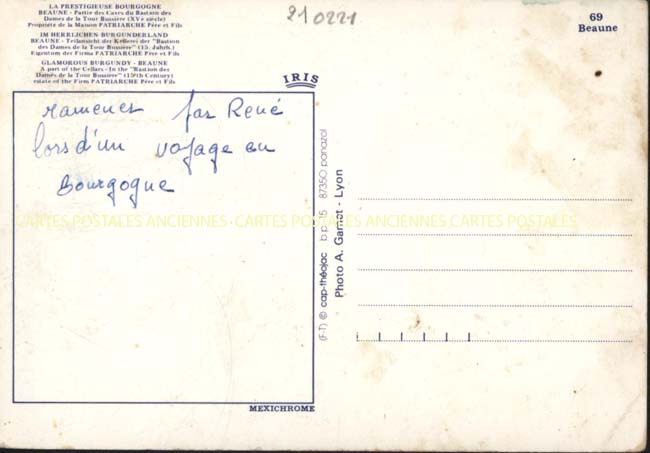 LA PRESTIGIEUSE BOURGOGNE
BEAUNE - Partie des Caves du Bastion des
Dames de la Tour Bussière (XVe siècle)
Propriété de la Maison PATRIARCHE Père et Fils
IM HERRLICHEN BURGUNDERLAND
BEAUNE - Teilansicht der Kellerei der "Bastion
des Dames de la Tour Bussière" (15. Jahrh.)
Eigentum der Firma PATRIARCHE Père et Fils
GLAMOROUS BURGUNDY - BEAUNE
A part of the Cellars - In the "Bastion des
Dames de la Tour Bussière" (15th Century)
estate of the Firm PATRIARCHE Père et Fils
210221
69
Beaune
IRIS
ramener par René
lors d'un voyage en
Bourgogne
CARTES POSTALES ANCIENNES - CARTES POSTALES ANCIENNES - CARTES POSTALES
(F-T) © cap-théojac b.p. 15 87350 panazol
Photo A. Garnet - Lyon
MEXICHROME